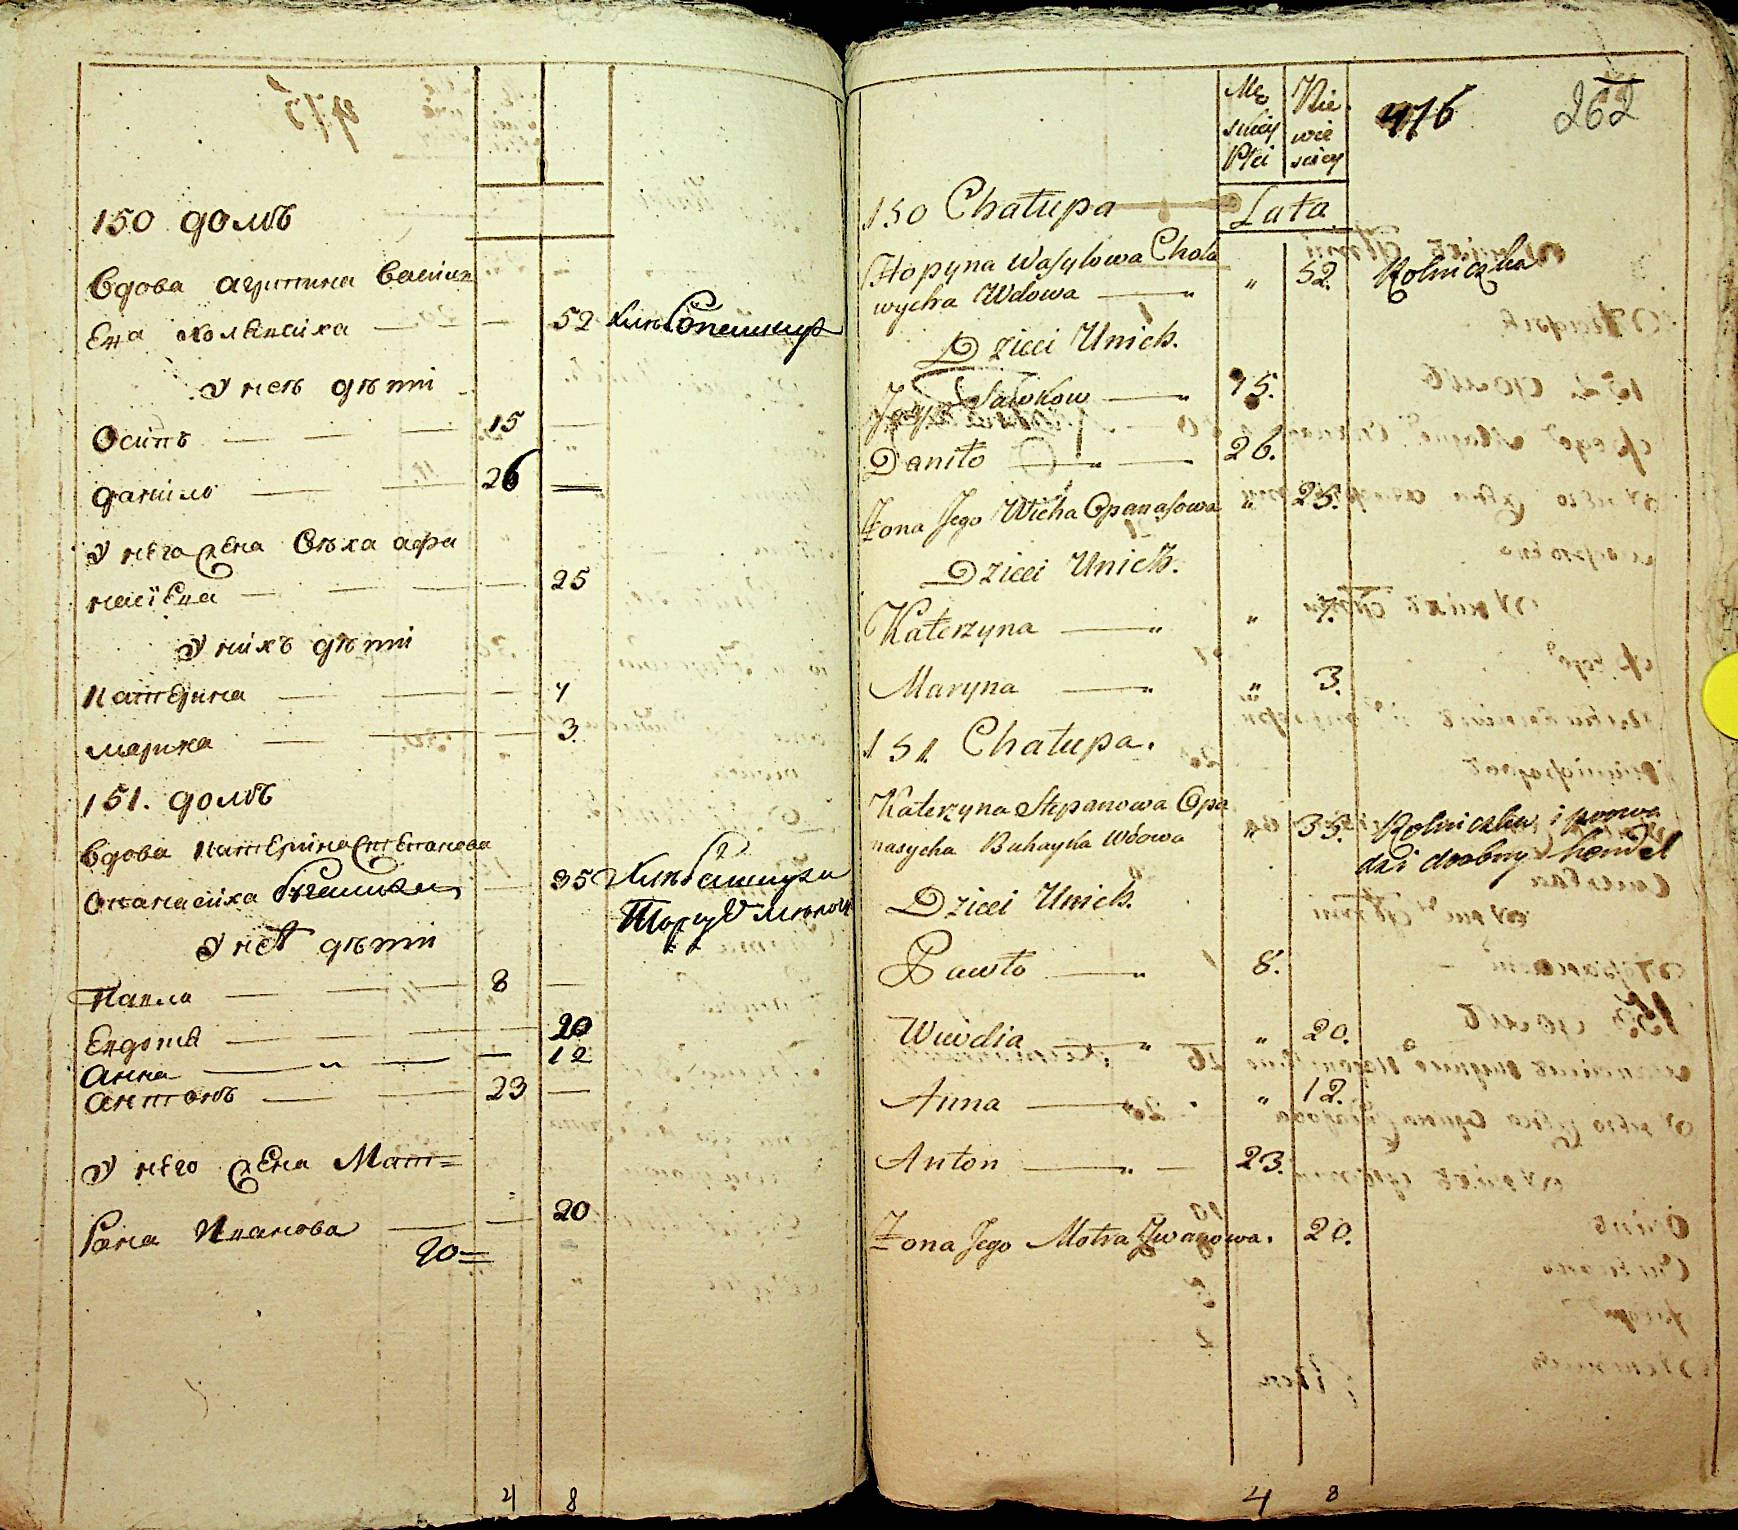 150 домъ
Вдова агрипина Васил
Ева холявчиха — — 52
У неѣ дѣти
Осипъ — — — 15 —
данило — — 26 —
У него жена Вѣха афа
насіева — — — — 25
У нихъ дѣти
Катерина — — — 7
марина — — — 3
151. домъ
Вдова катерина Степанова
Опанасиха — 35
У неѣ дѣти
Павло — — — 8 —
Евдокія — — — 20
анна — „ — — 12
антонъ — — 23 —
У него жена Мат=
рана Иванова — — 20
20=
4 8
Mę
skiey
Płci
Nie
wie
sciey
476
262
150 Chałupa
Lata
Hopyna Wasylowa Chola
wycha Wdowa — „ „ 52. Rolniczka
Dzieci Unich.
Sawkow — 15.
Daniło — „ — 26.
Żona Jego Wicha Opanasowa „ 25.
Dzieci Unich.
Katerzyna — „ „ 7.
Maryna — „ „ 3.
151 Chałupa.
Katerzyna Stepanowa Opa
nasycha Buhayka Wdowa „ 35. Rolniczka i prowa
dzi drobny handel
Dzieci Unich.
Pawło — „ 8.
Wiwdia — „ „ 20.
Anna — „ 12.
Anton — „ — 23.
Żona Jego Motra Iwanowa. 20.
4 8